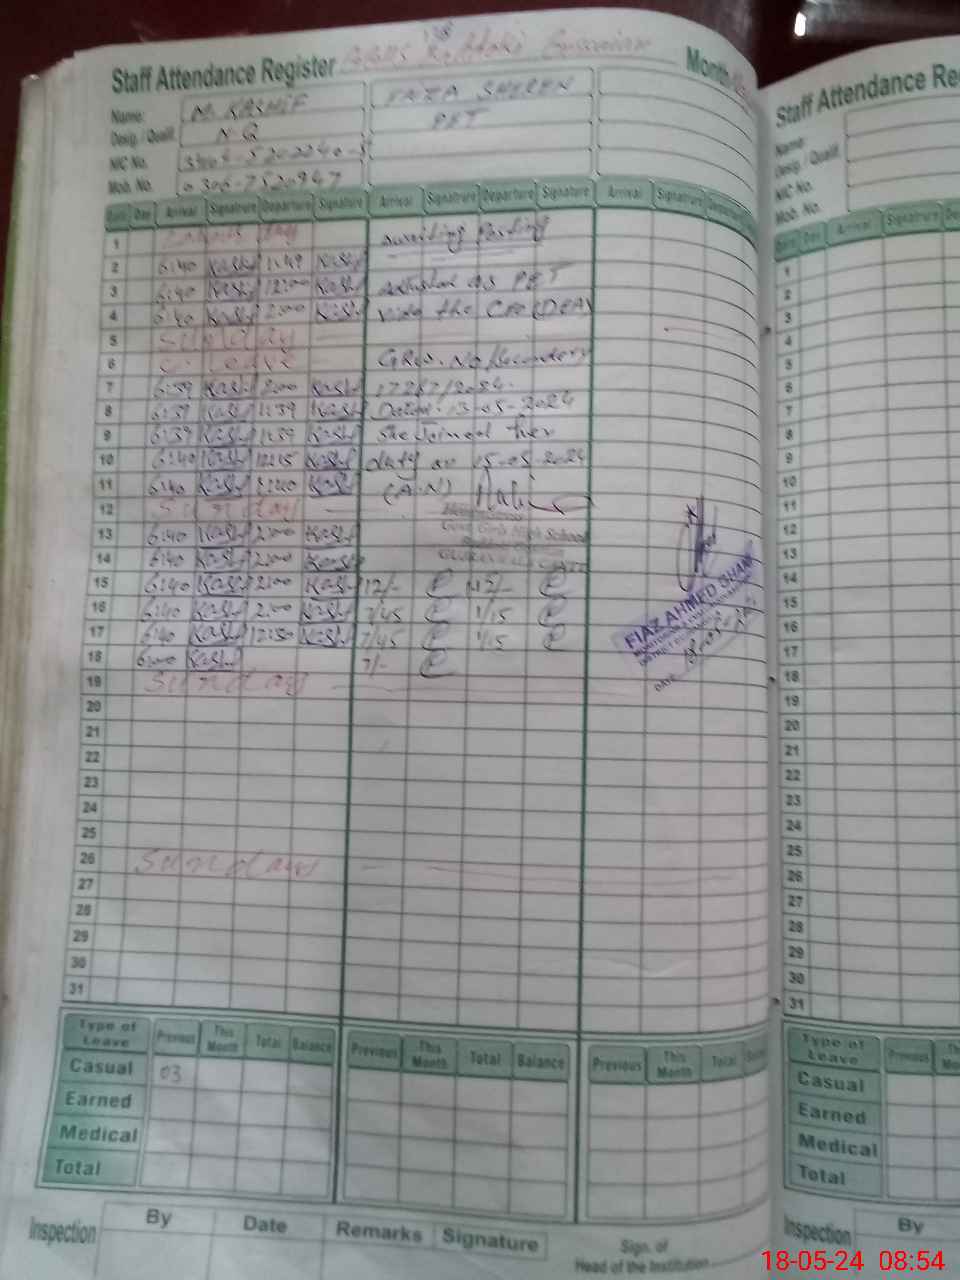 Staff Attendance Register
Month
Name: M. KASHIF FAIZA SHEREN
Desig / Qualif. N-Q PET
NIC No.
Mob. No. 0306-7520947
Date Day Arrival Signatrure Departure Signature Arrival Signatrure Departure Signature Arrival Signatrure Departure
1 Labour Day Awaiting Posting
2 6:40 Kashif 11:49 Kashif
3 6:40 Kashif 12:00 Kashif Adjusted as PET
4 6:40 Kashif 2:00 Kashif vide the CEO (DEA)
5 Sunday
6 C-Leave
7 6:39 Kashif 2:00 Kashif
8 6:39 Kashif 1:39 Kashif Dated. 13-05-2024
9 6:39 Kashif 1:39 Kashif She Joined her
10 6:40 Kashif 12:15 Kashif duty on 15-05-2024
11 6:40 Kashif Kashif (A.N)
12 Sunday
13 6:40 Kashif 2:00 Kashif Govt Girls High School
14 6:40 Kashif 2:00 Kashif
15 6:40 Kashif 2:00 Kashif 12/-
16 6:40 Kashif 2:00 Kashif 7/45 1/15
17 6:40 Kashif 12:30 Kashif 7/45 1/15
18 Kashif 7/-
19 Sunday
20
21
22
23
24
25
26 Sunday
27
28
29
30
31
FIAZ AHMED GHANI
DATE
Type of Leave Previous This Month Total Balance Previous This Month Total Balance Previous This Month Total
Casual 03
Earned
Medical
Total
Inspection By Date Remarks Signature
Sign. of
Head of the Institution
Staff Attendance Re
Name:
Desig / Qualif.
NIC No.
Mob. No.
Date Day Arrival Signatrure
1
2
3
4
5
6
7
8
9
10
11
12
13
14
15
16
17
18
19
20
21
22
23
24
25
26
27
28
29
30
31
Type of Leave Previous
Casual
Earned
Medical
Total
Inspection By
18-05-24 08:54